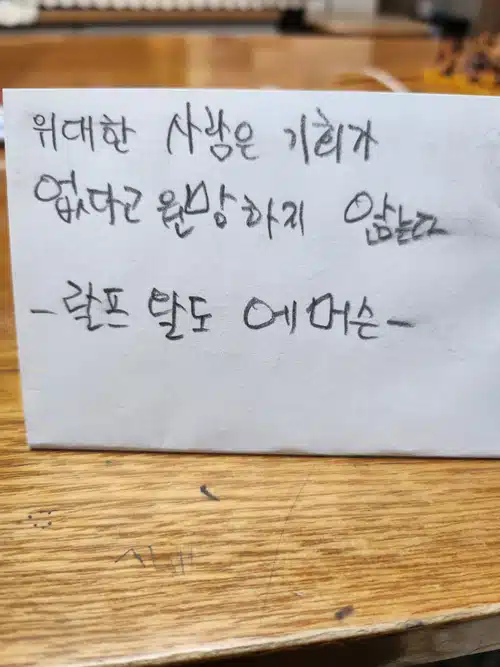 위대한 사람은 기회가
없다고 원망하지 않는다
-랄프 왈도 에머슨-